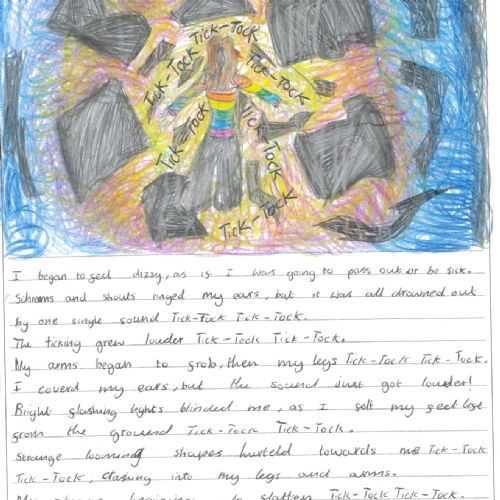 Tock
Tick-Tock
Tick-Tock
Tick-Tock
Tick-Tock
Tick-Tock
Tick-Tock
I began to feel dizzy, as if I was going to pass out or be sick.
and shouts ringed my ears, but it was all drowned out
by one single sound Tick-Tock Tick-Tock.
The ticking grew louder Tick-Tock Tick-Tock.
My arms began to frob, then my legs Tick-Tock Tick-Tock.
I coverd my ears, but the sound just got louder!
Bright flashing lights blinded me, as I felt my feet
from the ground Tick-Tock Tick-Tock.
Strange looming shapes hurteld towards me Tick-Tock
Tick-Tock, into my legs and arms.
My to flatten Tick-Tock Tick-Tock.